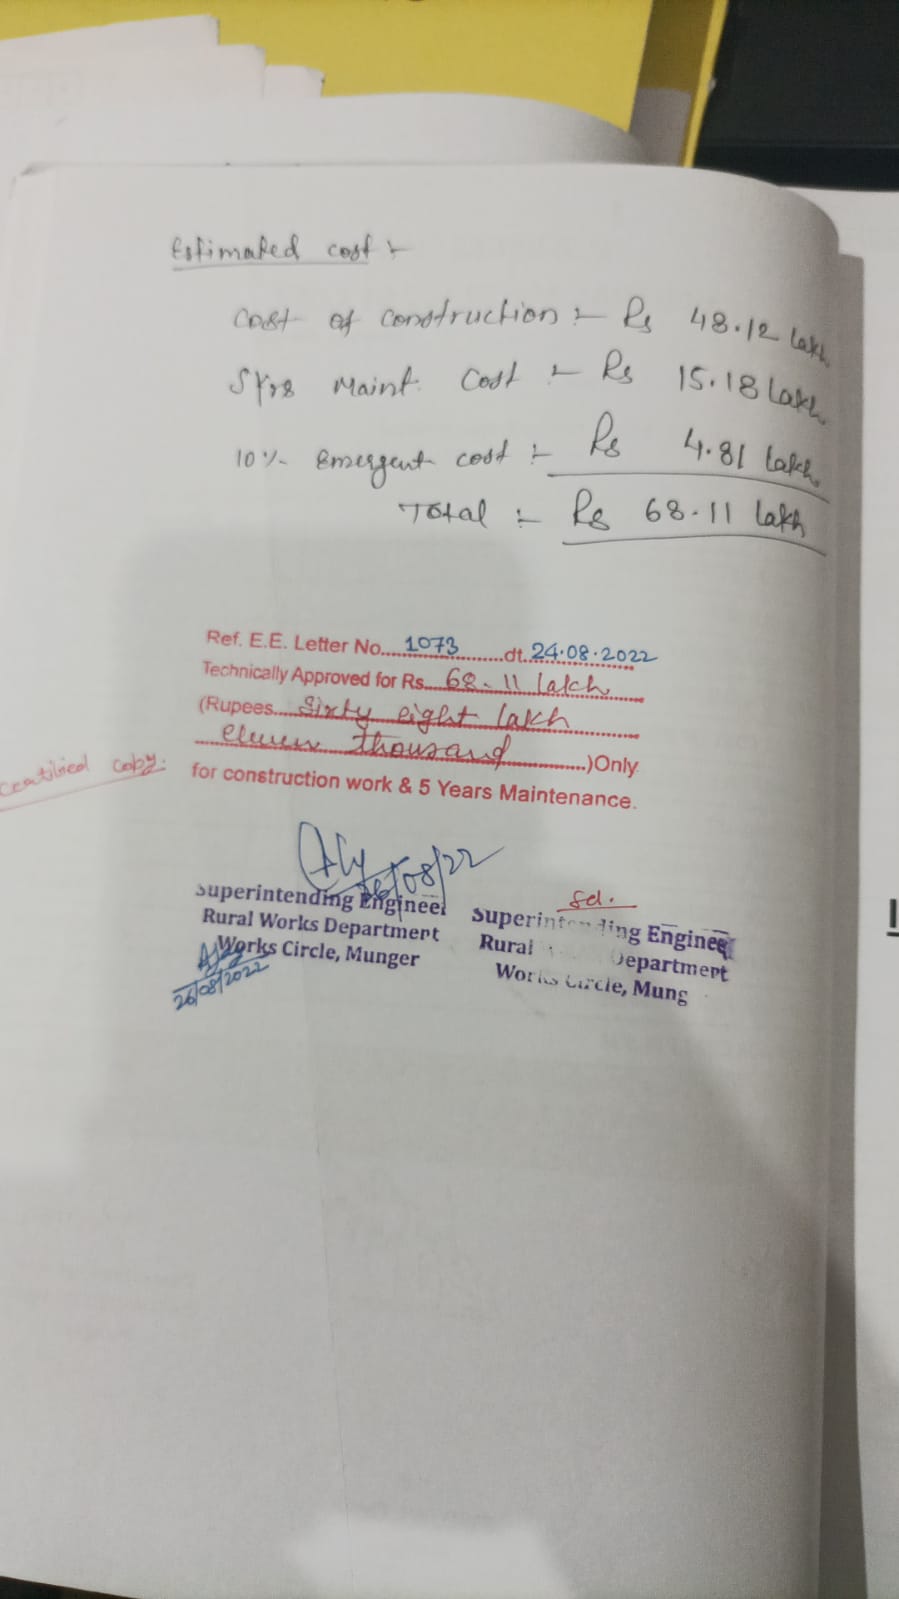 Estimated cost :-
Cost of construction :- Rs 48.12 lakh
5 Yrs Maint. Cost :- Rs 15.18 lakh
10% Emergent cost :- Rs 4.81 lakh
Total :- Rs 68.11 lakh
Ref. E.E. Letter No....1073...........dt.24.08.2022
Technically Approved for Rs....68.11 lakh
(Rupees....Sixty eight lakh
eleven thousand...............)Only
Certified copy.
for construction work & 5 Years Maintenance.
26/08/22
Superintending Engineer
Rural Works Department
Works Circle, Munger
26/08/2022
Sd.
Superintending Enginee
Rural Department
Works Circle, Mung